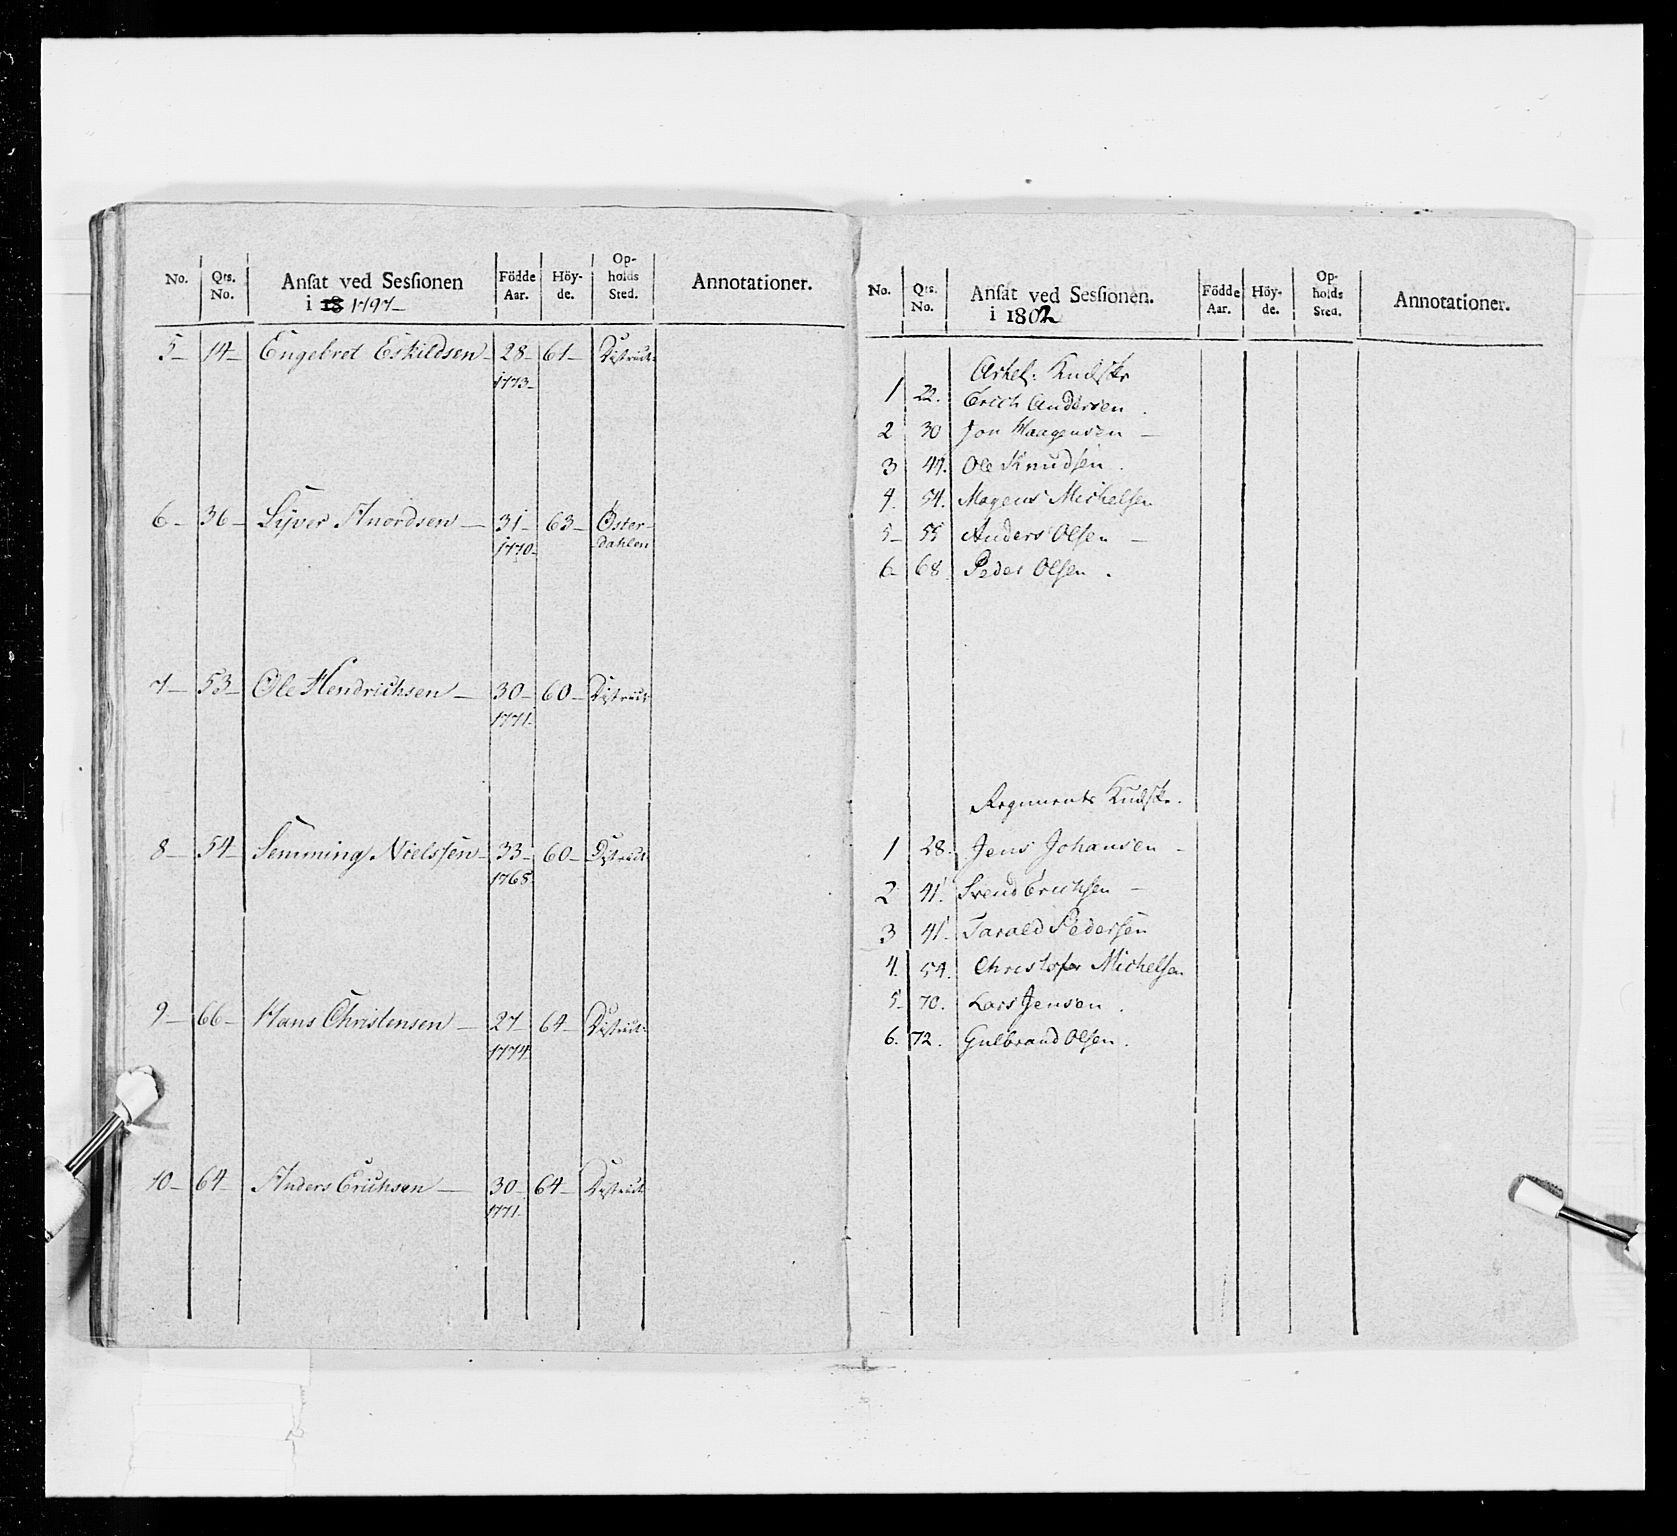 No. Qts. No. Ansat ved Sessionen i 18 1797 Födde Aar. Höy-de. Op-holds Sted. Annotationer.
5 14 Engebret Eskildsen 28 61 District
1773
6 36 Siver Anordsen 31 63 Öster-
1770 dahlen
7 53 Ole Hendrichsen 30 60 District
1771
8 54 Semming Nielssen 33 60 District
1768
9 66 Hans Christensen 27 64 District
1774
10 64 Anders Erichsen 30 64 District
1771
No. Qts. No. Ansat ved Sessionen. i 1802 Födde Aar. Höy-de. Op-holds Sted. Annotationer.
Kudske
1 22. Erich Andersen.
2 30 Jon Haagensen
3 44. Ole Knudsen.
4. 54. Mogens Michelsen
5 55 Anders Olsen
6 68 Peder Olsen.
Regiments Kudske.
1 28. Jens Johansen
2 41. Svend Erichsen
3 41 Tarald Pedersen
4. 54. Christofer Michelsen
5 70. Lars Jensen.
6. 72. Gulbrand Olsen.